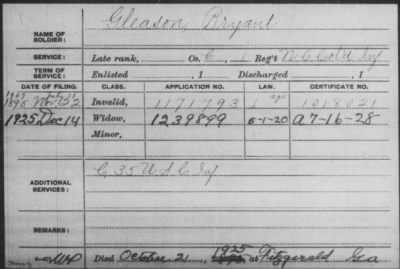 NAME OF SOLDIER: Gleason, Bryant
SERVICE: Late rank, Co. C, 1 Reg't N.C. Col'd Inf
TERM OF SERVICE: Enlisted , 1 Discharged , 1
DATE OF FILING. CLASS. APPLICATION NO. LAW. CERTIFICATE NO.
Invalid, 1171793 1018021
1925 Dec 14 Widow, 1239899 5-1-20 A7-16-28
Minor,
ADDITIONAL SERVICES: C. 35 U.S.C. Inf
REMARKS:
Died October 21, 1925 at Fitzgerald Ga